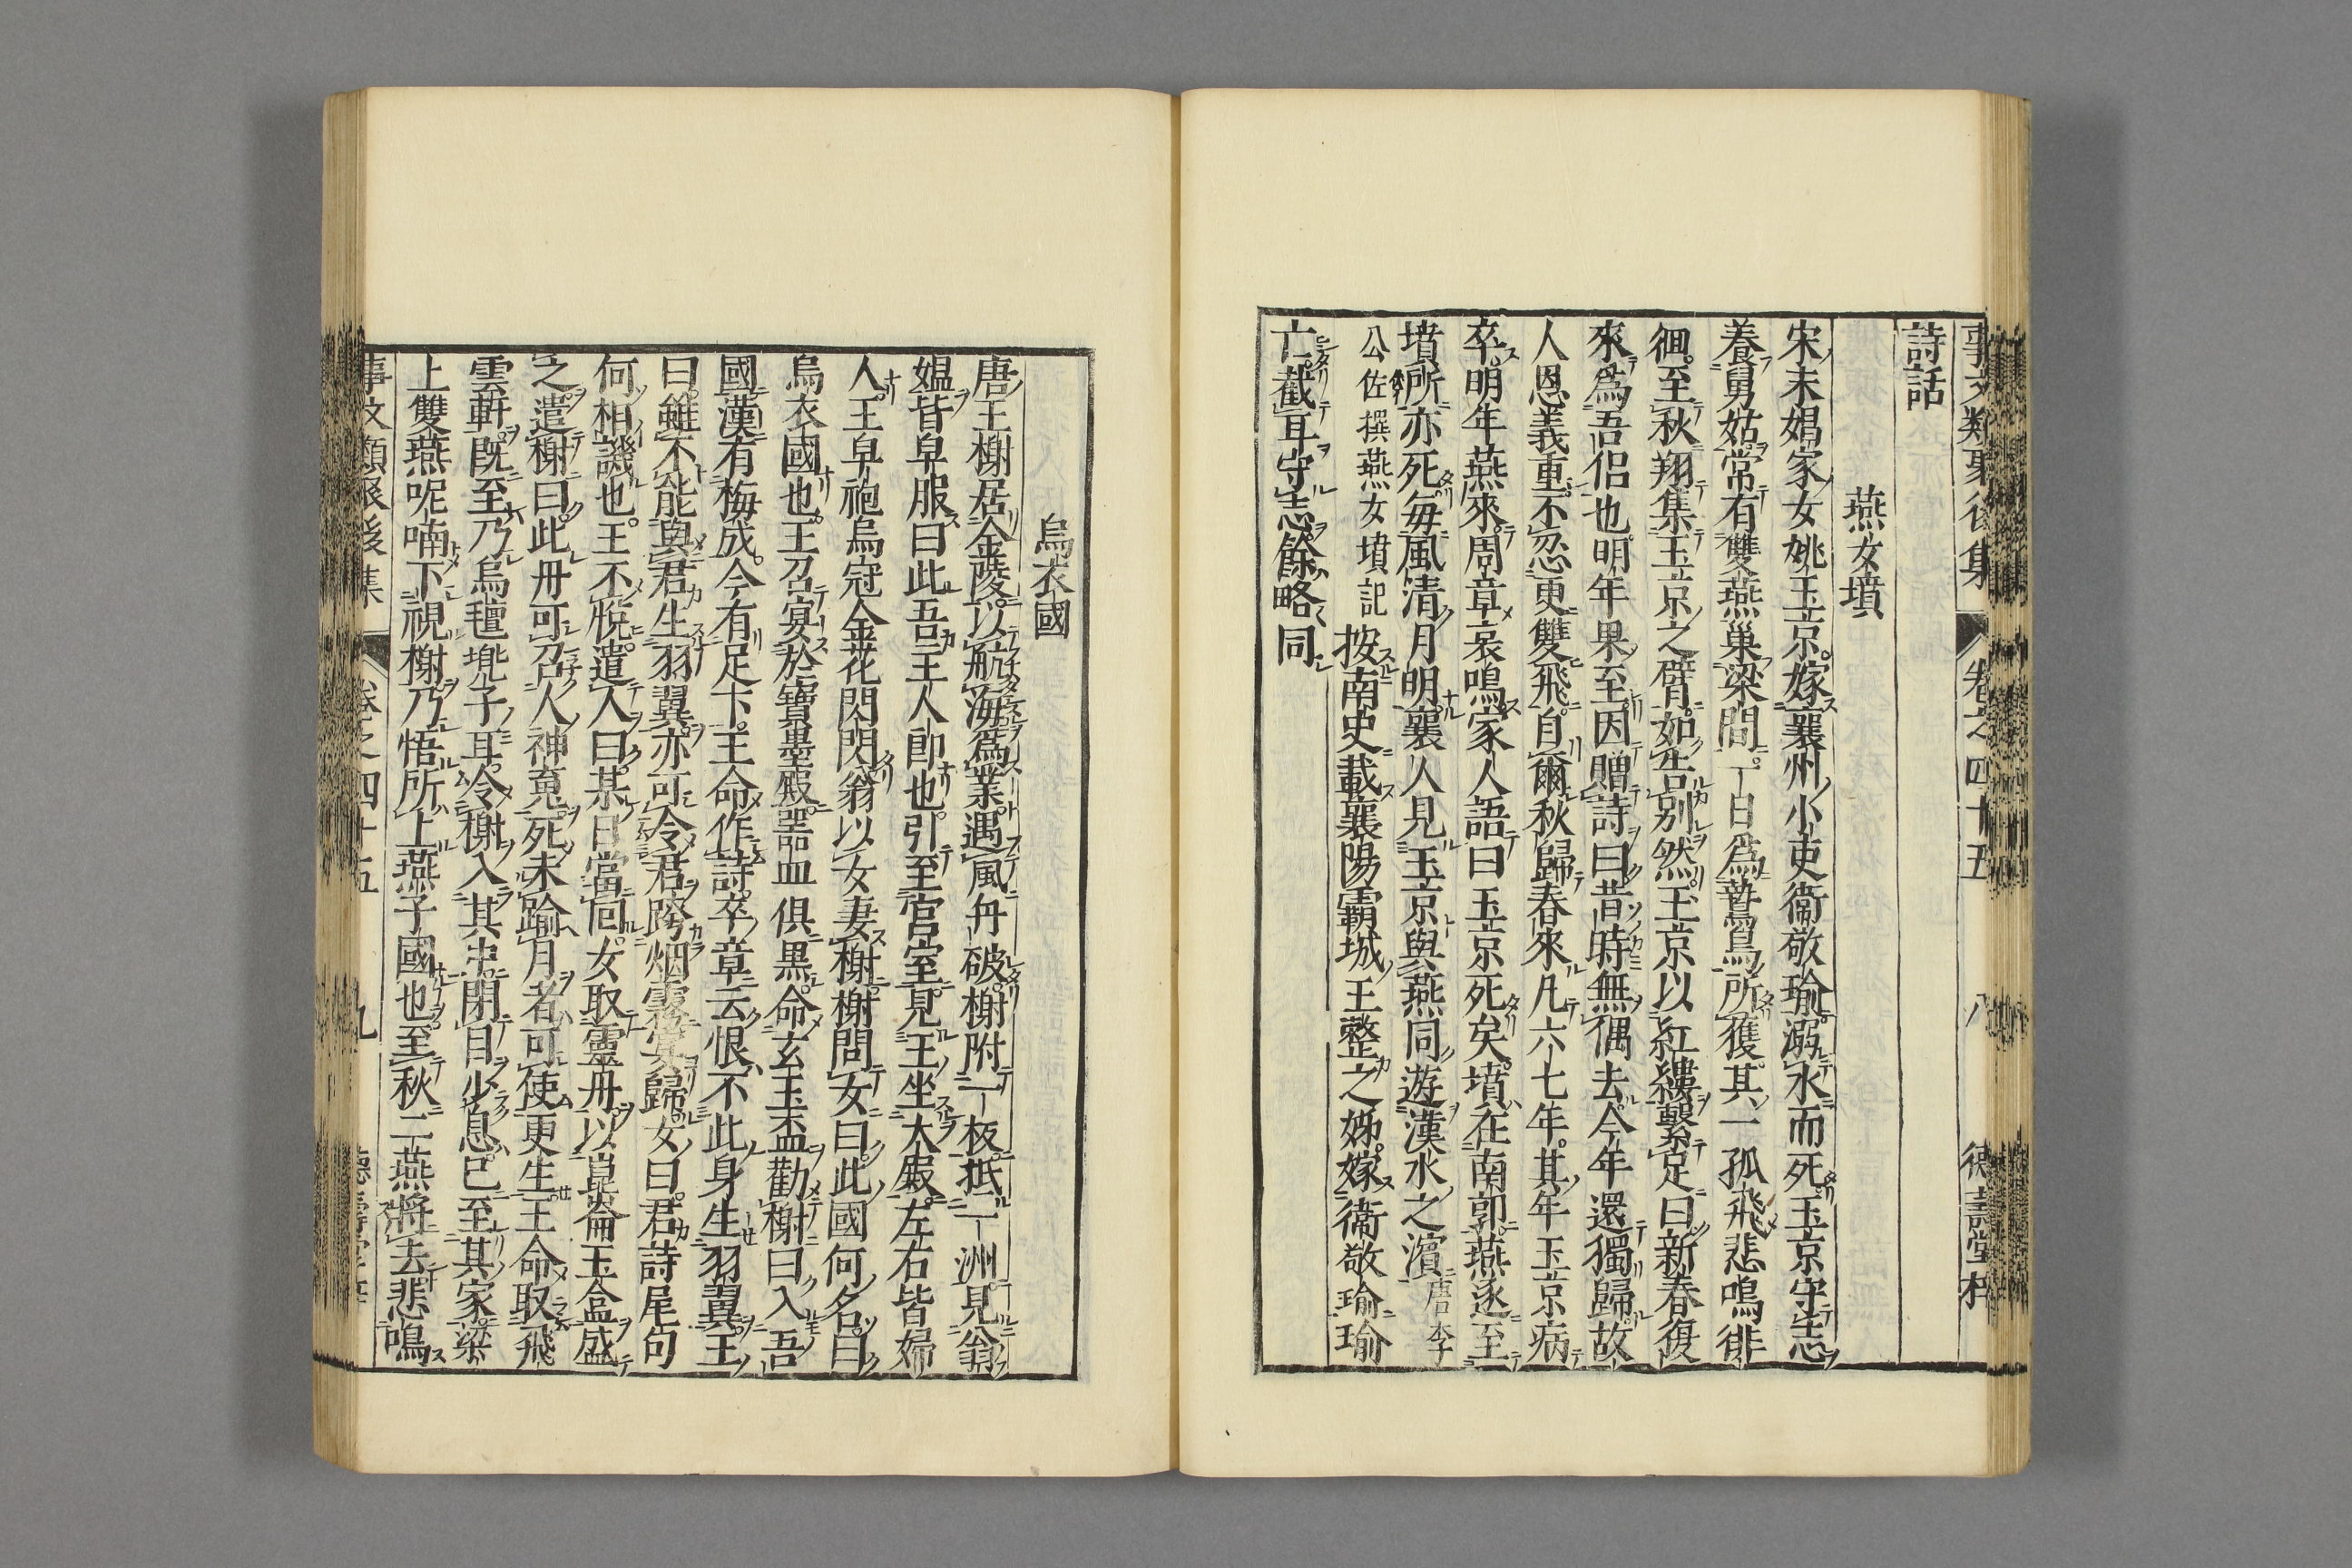 事文類聚後集 卷之四十五 八 德壽堂梓
詩話
燕女墳
宋末娼家女姚玉京嫁襄州小吏衞敬瑜溺水而死玉京守志
養舅姑常有雙燕巢梁間一日爲鷙鳥所獲其一孤飛悲鳴徘
徊至秋翔集玉京之臂如告別然玉京以紅縷繫足曰新春復
來爲吾侶也明年果至因贈詩曰昔時無偶去今年還獨歸故
人恩義重不忍更雙飛自爾秋歸春來凡六七年其年玉京病
卒明年燕來周章哀鳴家人語曰玉京死矣墳在南郭燕逐至
墳所亦死每風清月明襄人見玉京與燕同遊漢水之濵唐李
公佐撰燕女墳記 按南史載襄陽霸城王整之姊嫁衞敬瑜瑜
亡截耳守志餘略同
烏衣國
唐王榭居金陵以航海爲業遇風舟破榭附一板抵一洲見翁
媼皆皁服曰此吾主人郎也引至宮室見王坐大殿左右皆婦
人王皁袍烏冠金花閃閃翁以女妻榭榭問女曰此國何名曰
烏衣國也王召宴於寶墨殿器皿俱黒命玄玉盃勸榭曰入吾
國漢有梅成今有足下王命作詩卒章云恨不此身生羽翼王
曰雖不能與君生羽翼亦可令君跨烟霧宴歸女曰君詩尾句
何相譏也王不悅遣人曰某日當囘女取靈丹以崑崙玉盒盛
之遣榭曰此丹可召人神䰟死未踰月者可使更生王命取飛
雲軒既至乃烏氊兠子耳令榭入其中閉目少息已至其家梁
上雙燕呢喃下視榭乃悟所上燕子國也至秋二燕將去悲鳴
事文類聚後集 卷之四十五 九